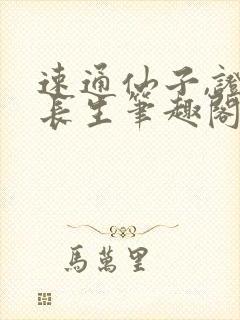 速通仙子,證
長生筆趣閣
馬萬里